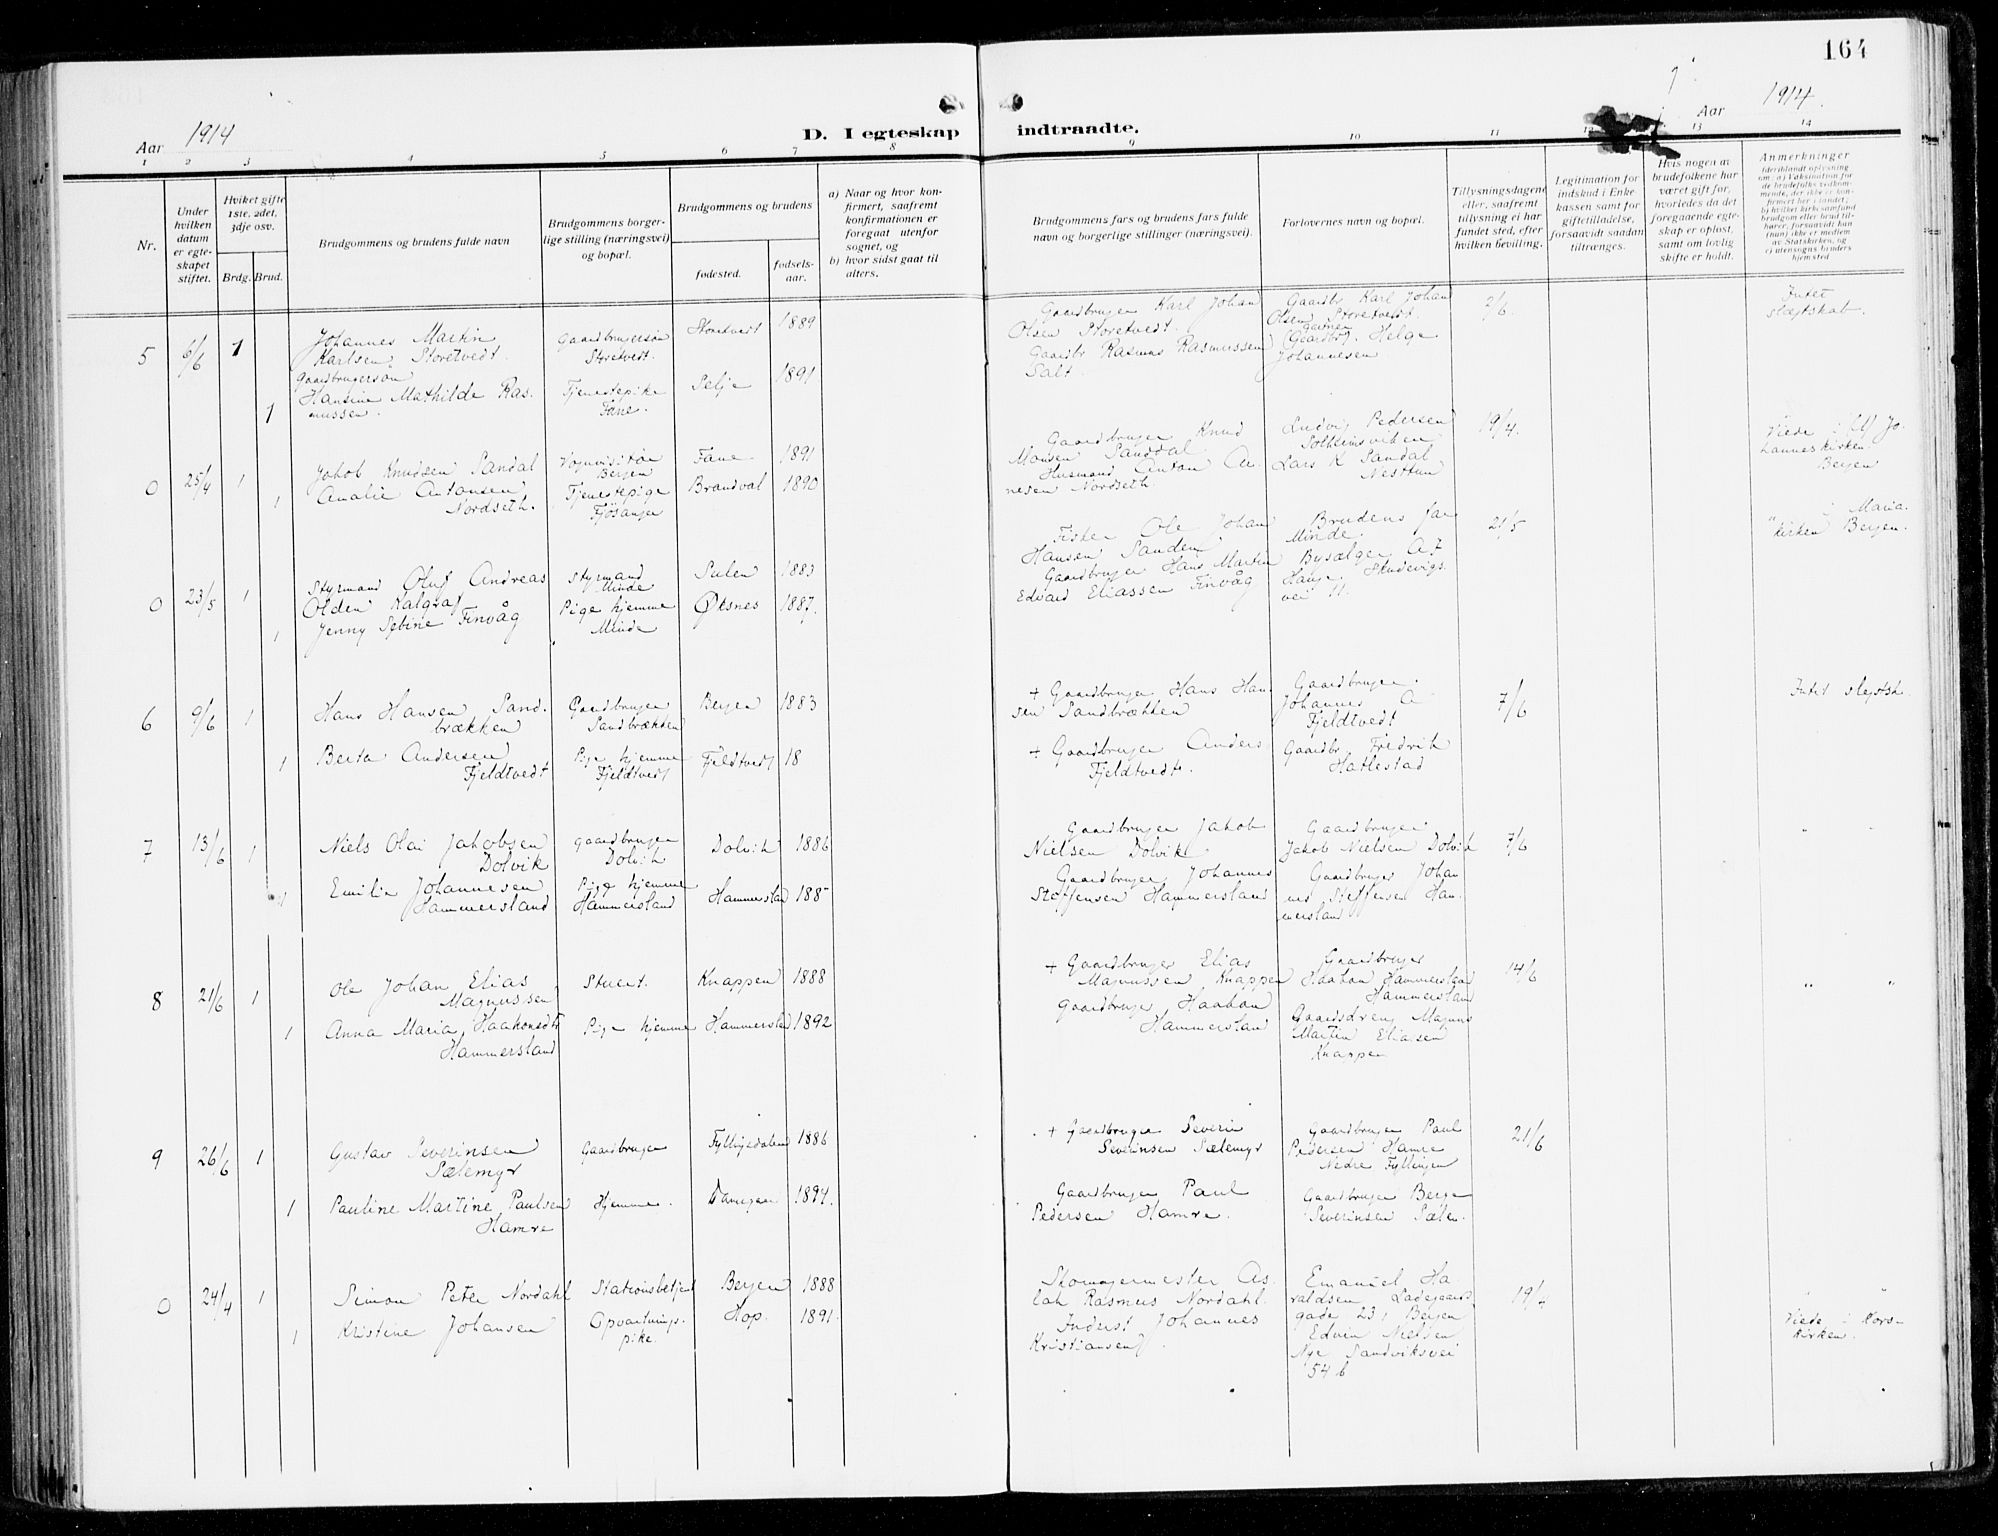 164
Aar 1914
D. I egteskap indtraadte.
Aar 1914.
1 2 3 4 5 6 7 8 9 10 11 12 13 14
Nr.
Under hvilken datum er egteskapet stiftet.
Hvilket gifte 1ste, 2det, 3dje osv.
Brdg. Brud.
Brudgommens og brudens fulde navn
Brudgommens borgerlige stilling (næringsvei) og bopæl.
Brudgommens og brudens
fødested.
fødselsaar.
a) Naar og hvor konfirmert, saafremt konfirmationen er foregaat utenfor sognet, og
b) hvor sidst gaat til alters.
Brudgommens fars og brudens fars fulde navn og borgerlige stillinger (næringsvei).
Forlovernes navn og bopæl.
Tillysningsdagene eller, saafremt tillysning ei har fundet sted, efter hvilken bevilling.
Legitimation for indskud i Enkekassen samt for giftetilladelse, forsaavidt saadan tiltrænges.
Hvis nogen av brudefolkene har været gift før, hvorledes da det foregaaende egteskap er opløst, samt om lovlig skifte er holdt.
Anmerkninger
5 6/6 1
Johannes Martin
Karlsen Storetvedt.
Gaardbrugersøn
Storetvedt.
Storetvedt 1889
Gaardbruger Karl Johan
Olsen Storetvedt.
Gaardbr Karl Johan
Olsen Storetvedt.
2/6.
Intet
slegtskab.
Gaardbrugersøn
1
Hansine Mathilde Ras-
mussen.
Tjenestepike
Fane.
Selje 1891
Gaardbr Rasmus Rasmussen
Salt.
gartner
(Gaardbr). Helge
Johannesen
0 25/4 1
Jakob Knudsen Sandal
Vognvisitør
Bergen
Fane 1891
Gaardbruger Knud
Monsen Sanddal
Ludvig Pedersen
Solheimsviken
19/4.
Viede i St Jo-
hanneskirken
Bergen
1
Amalie Antonsen
Nordseth.
Tjenestepige
Fjøsanger
Brandval 1890
Husmand Anton A.
nesen Nordseth.
Lars K Sandal
Nesttun
0 23/5 1
Styrmand Oluf Andreas
Olden Kalgraf
Styrmand
Minde
Sulen 1883
Fisker Ole Johan
Hansen Sanden
Brudens far
Minde.
21/5
" i Maria.
kirken Bergen.
1
Jenny Sebine Finvåg
Pige hjemme
Minde
Øksnes 1887.
Gaardbruger Hans Martin
Edvard Eliassen Finvåg
Byselger A F
Hauge. Skudevigs
vei 11.
6 9/6 1
Hans Hansen Sand.
brækken
Gaardbruger
Sandbrækken
Bergen 1883
+ Gaardbruger Hans Han-
sen Sandbrækken
Gaardbruger.
Johannes A
Fjeldtvedt
7/6
Intet slegtsk.
1
Berta Andersen
Fjeldtvedt
Pige hjemme
Fjeldtvedt
Fjeldtvedt 18
+ Gaardbruger Anders
Fjeldtvedt.
Gaardbr. Fredrik
Hatlestad
7 13/6 1
Niels Olai Jakobsen
Dolvik
gaardbruger
Dolvik
Dolvik 1886
Gaardbruger Jakob
Nielsen Dolvik
Gaardbruger
Jakob Nielsen Dolvik
7/6
" "
1
Emilie Johannesen
Hammersland
Pige hjemme
Hammersland
Hammersland 188
Gaardbruger Johannes
Steffensen Hammersland
Gaardbruger Johan
nes Steffensen Ham-
mersland
8 21/6 1
Ole Johan Elias
Magnussen
Stuert.
Knappen 1888
+ Gaardbruger Elias
Magnussen Knappen
Gaardbruger
Haakon Hammersland
Hammersland
14/6
" "
1
Anna Maria Haakonsdtr
Hammersland
Pige hjemme
Hammersland 1892
Gaardbruger Haakon
Hammersland
Gaardsdreng Magnus
Martin Eliassen
Knappen
9 26/6 1
Gustav Severinsen
Sælemyr
Gaardbruger
Fyllingsdalen 1886
+ Gaardbruger Severin
Severinsen Sælemyr
Gaardbruger Paul
Pedersen Hamre
Nedre Fyllingen
21/6
1
Pauline Martine Paulsen
Hamre
Hjemme.
1894.
Gaardbruger Paul
Pedersen Hamre.
Gaardbruger Berge
Severinsen Sælen.
0 24/4 1
Simon Peter Nordahl
Stationsbetjent
Bergen 1888
Skomagermester As-
lak Rasmus Nordahl.
Emanuel Ha-
raldsen Ladegaards
gade 23, Bergen
19/4
" "
Viede i Kors-
kirken.
1
Kristine Johansen
Opvartnings-
pike.
Hop. 1891.
Inderst Johannes
Kristiansen.
Edvin Nielsen
Nye Sandviksvei
54 b